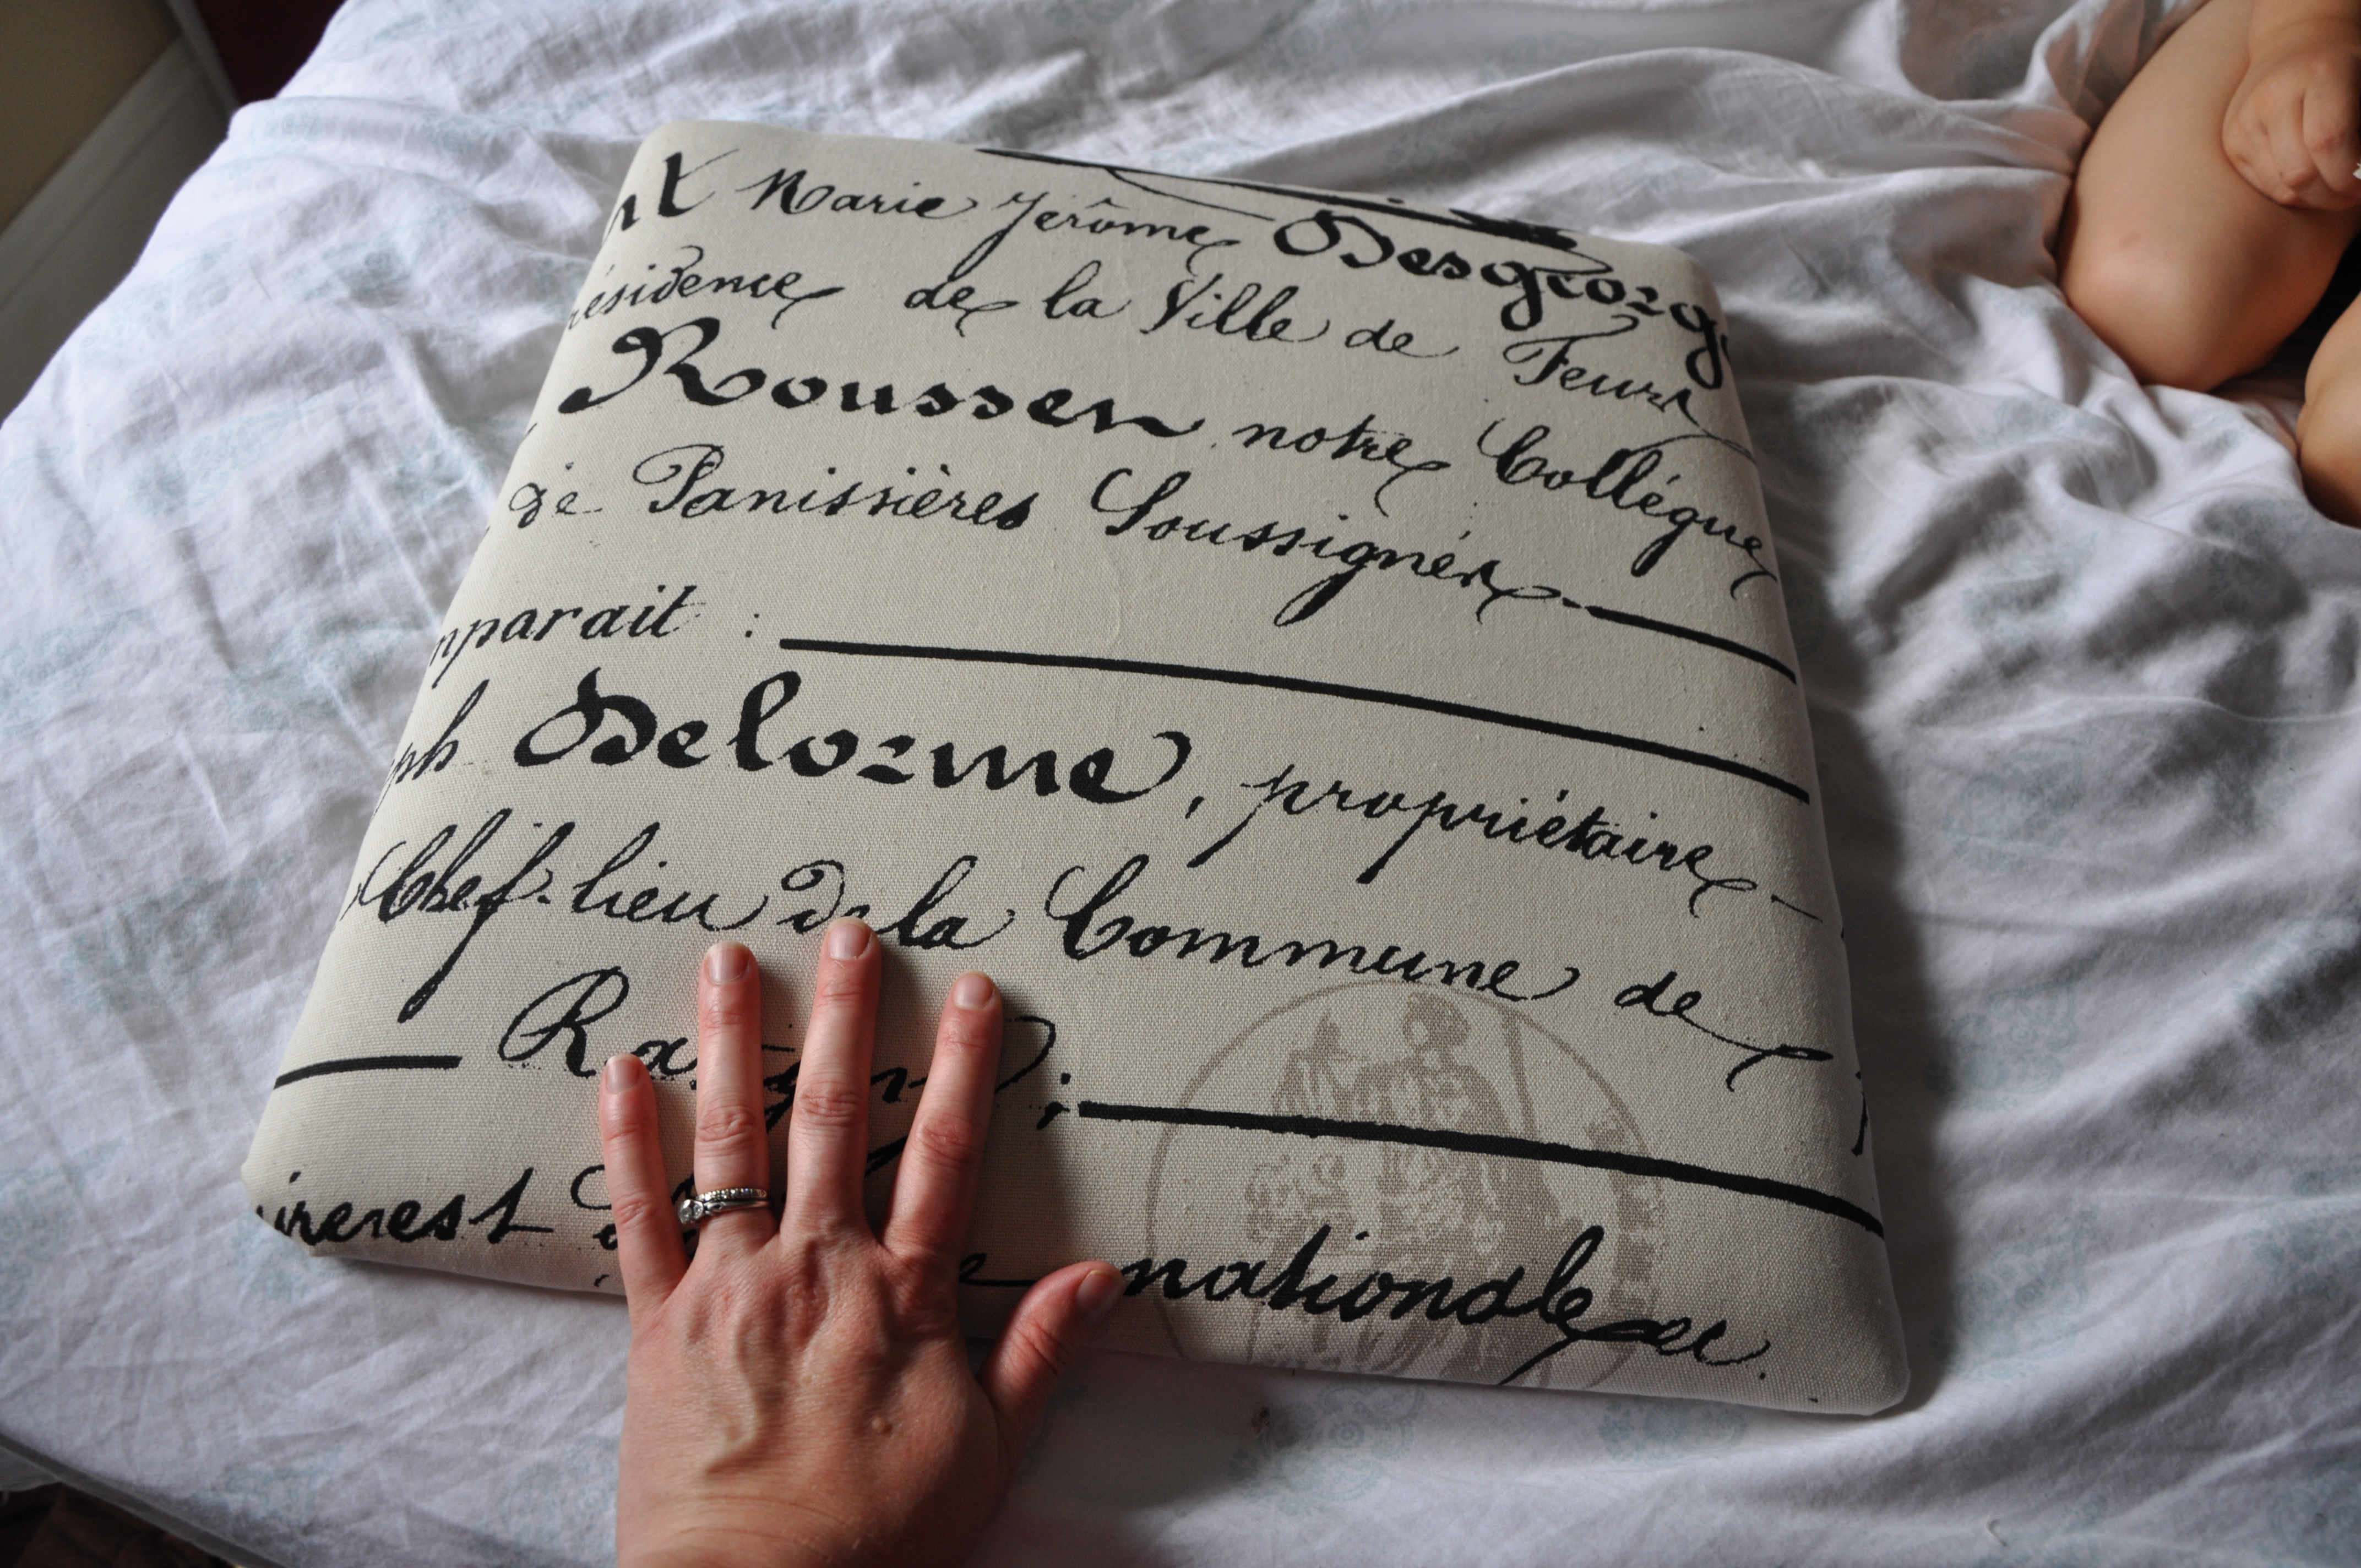 Marie Jerôme Desgeorg
ésidence de la Ville de Feurs
Rousser notre Collégue
de Panissières Soussignés
mparait :
ph Delorme, propriétaire
Chef-lieu de la Commune de
nationale et